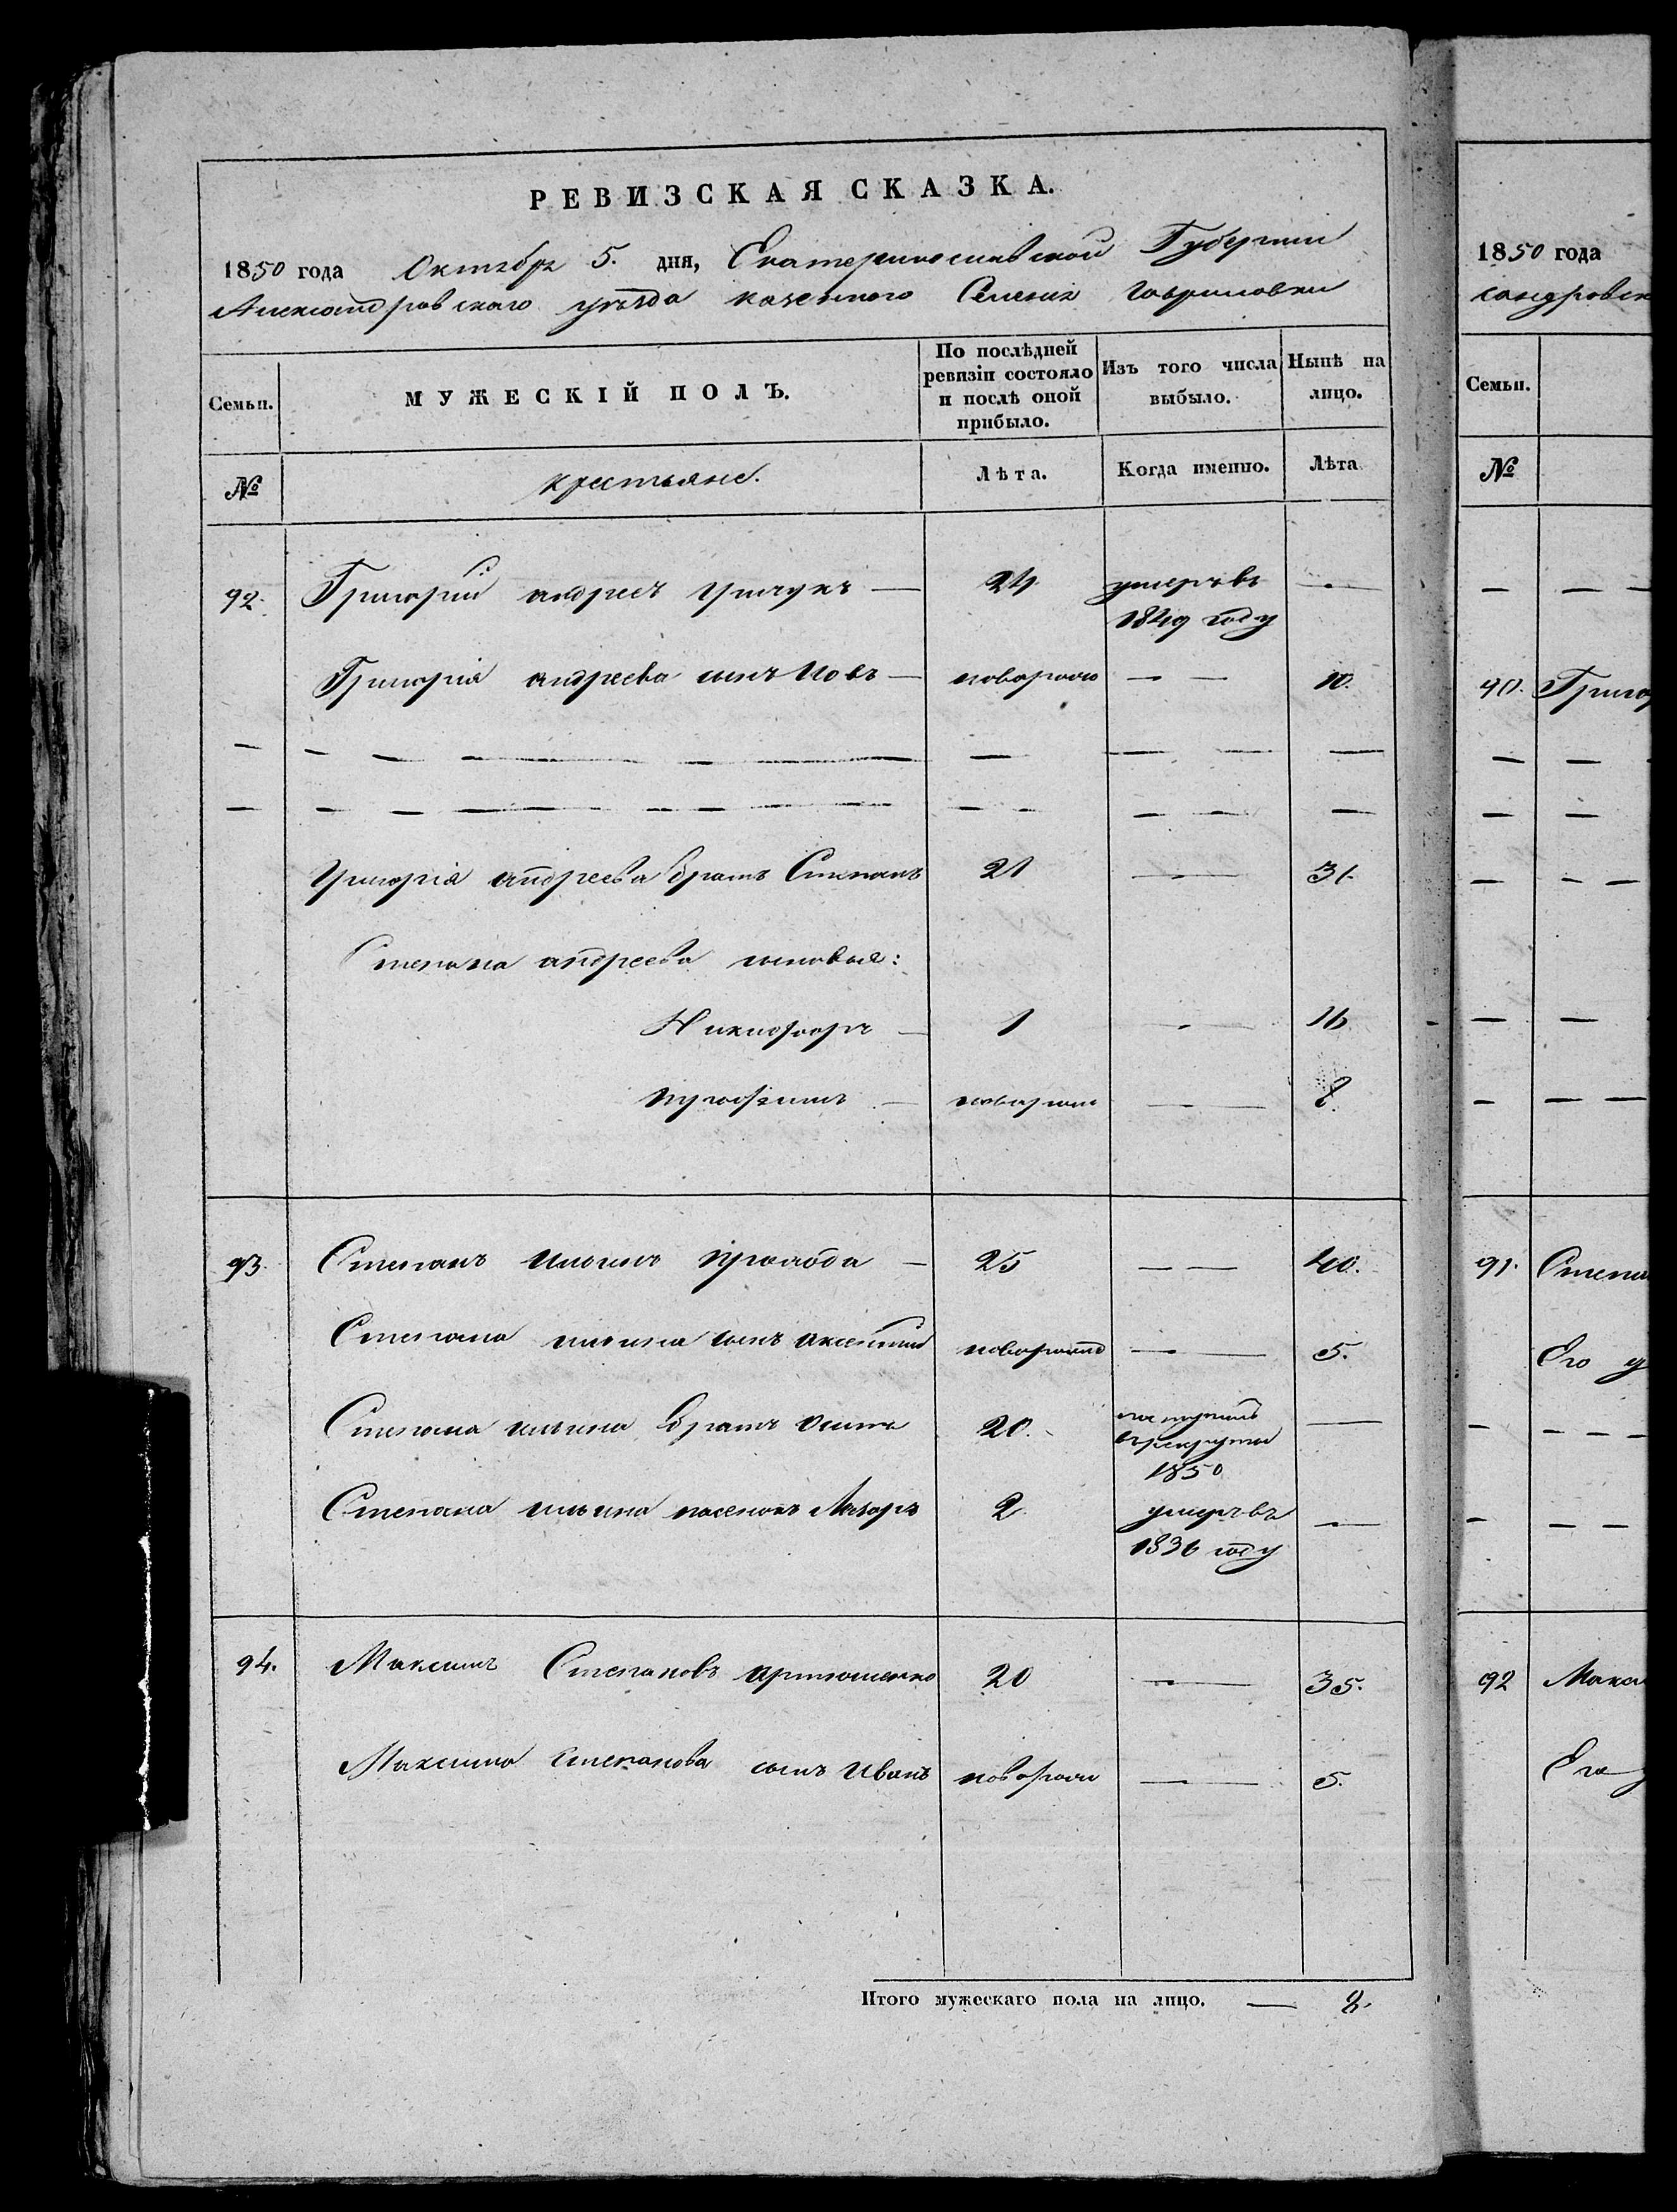 РЕВИЗСКАЯ СКАЗКА.
1850 года Октября 5. дня, Екатеринославской Губернии
Александровского уѣзда казенного Селения Гавриловки
Семьи. МУЖЕСКІЙ ПОЛЪ. По послѣдней ревизіи состояло и послѣ оной прибыло. Изъ того числа выбыло. Нынѣ на лицо.
№ крестьяне. Лѣта. Когда именно. Лѣта
92. Григорий андреев — 24 умеръ въ —
1849 году
Григорія андреева сынъ Иовъ — новорож — — 10.
Григорія андреева братъ Степанъ 21 — 31.
Степана андреева сыновья:
Никифоръ — 1 — 16
— новорож — 8.
93. Степанъ Ильинъ — 25 — — 40.
Степана ильина сынъ Аксентий новорожд — 5.
Степана ильина братъ Осипъ 20. поступилъ —
в рекруты
1850
Степана ильина пасенокъ Лазарь 2 умеръ въ —
1836 году
94. Максимъ Степановъ Артюшенко 20 — 35.
Максима Степанова сынъ Иванъ новорож — 5.
Итого мужескаго пола на лицо. — 8.
1850 года
сандровск
Семьи.
№
90. Григо
91. Степа
Его
92 Макси
Его